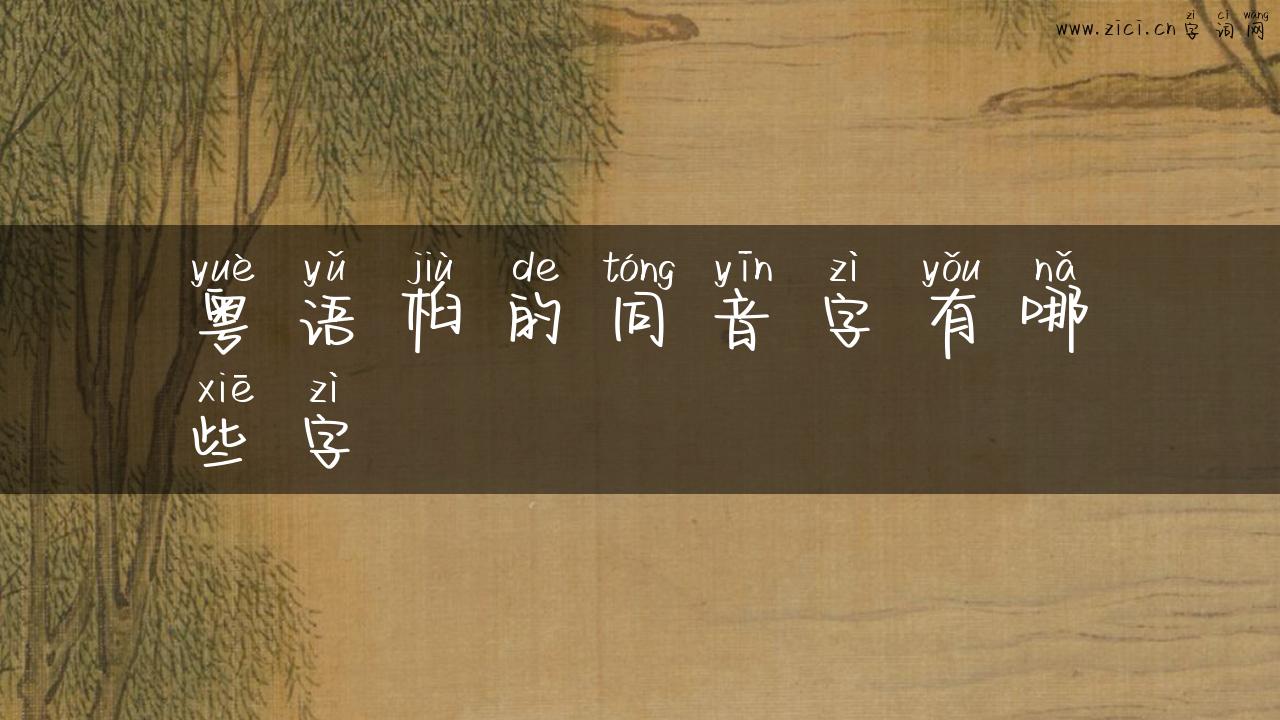 zì cí wǎng
www.zici.cn字词网
yuè yǔ jiù de tóng yīn zì yǒu nǎ
粤语桕的同音字有哪
xiē zì
些字